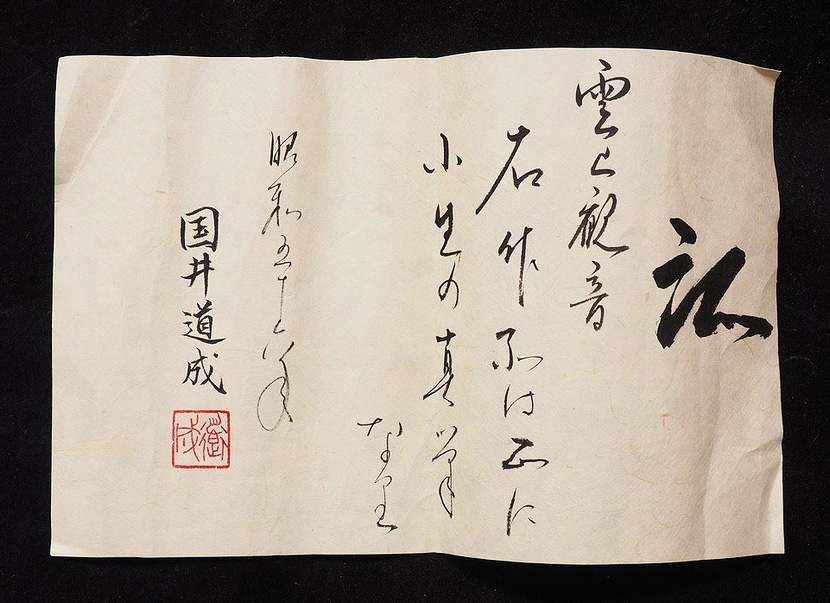 証
雲上観音
右作品は正に
小生の真筆
なり
昭和五十六年
国井道成
道成